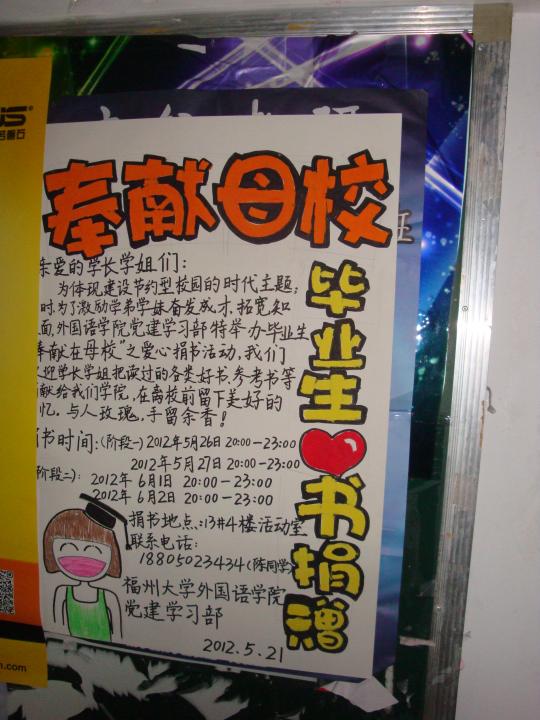 奉献母校
亲爱的学长学姐们:
为体现建设节约型校园的时代主题;
时,为了激励学弟学妹奋发成才,拓宽知
面,外国语学院党建学习部特举办毕业生
奉献在母校"之爱心捐书活动,我们
迎学长学姐把读过的各类好书,参考书等
献给我们学院,在离校前留下美好的
忆。与人玫瑰,手留余香!
书时间:(阶段一)2012年5月26日 20:00-23:00
2012年5月27日 20:00-23:00
阶段二):2012年 6月1日 20:00-23:00
2012年 6月2日 20:00-23:00
捐书地点:13#4楼活动室
联系电话:
18805023434(陈同学)
福州大学外国语学院
党建学习部
2012.5.21
毕业生
书捐赠